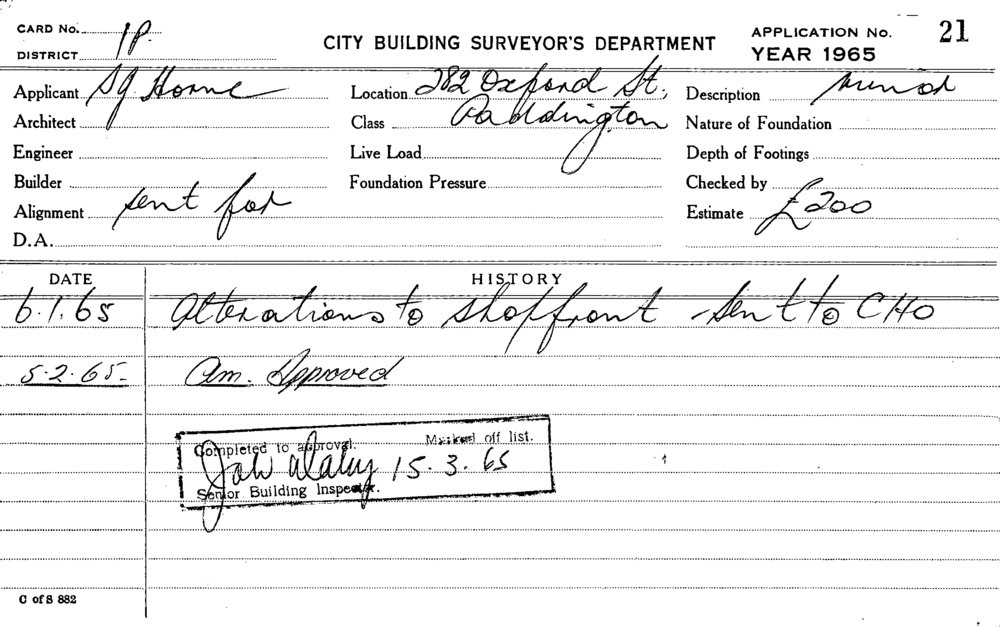 CARD No. 1P. CITY BUILDING SURVEYOR'S DEPARTMENT APPLICATION No. 21
DISTRICT YEAR 1965
Applicant Horne Location 282 Oxford St, Description minor
Architect Class Paddington Nature of Foundation
Engineer Live Load Depth of Footings
Builder Foundation Pressure Checked by
Alignment sent for Estimate £200
D.A.
DATE HISTORY
6.1.65 Alterations to shopfront - sent to CHO
5.2.65- Am. Approved
Completed to approval. Marked off list.
15.3.65
Senior Building Inspector.
C of S 882